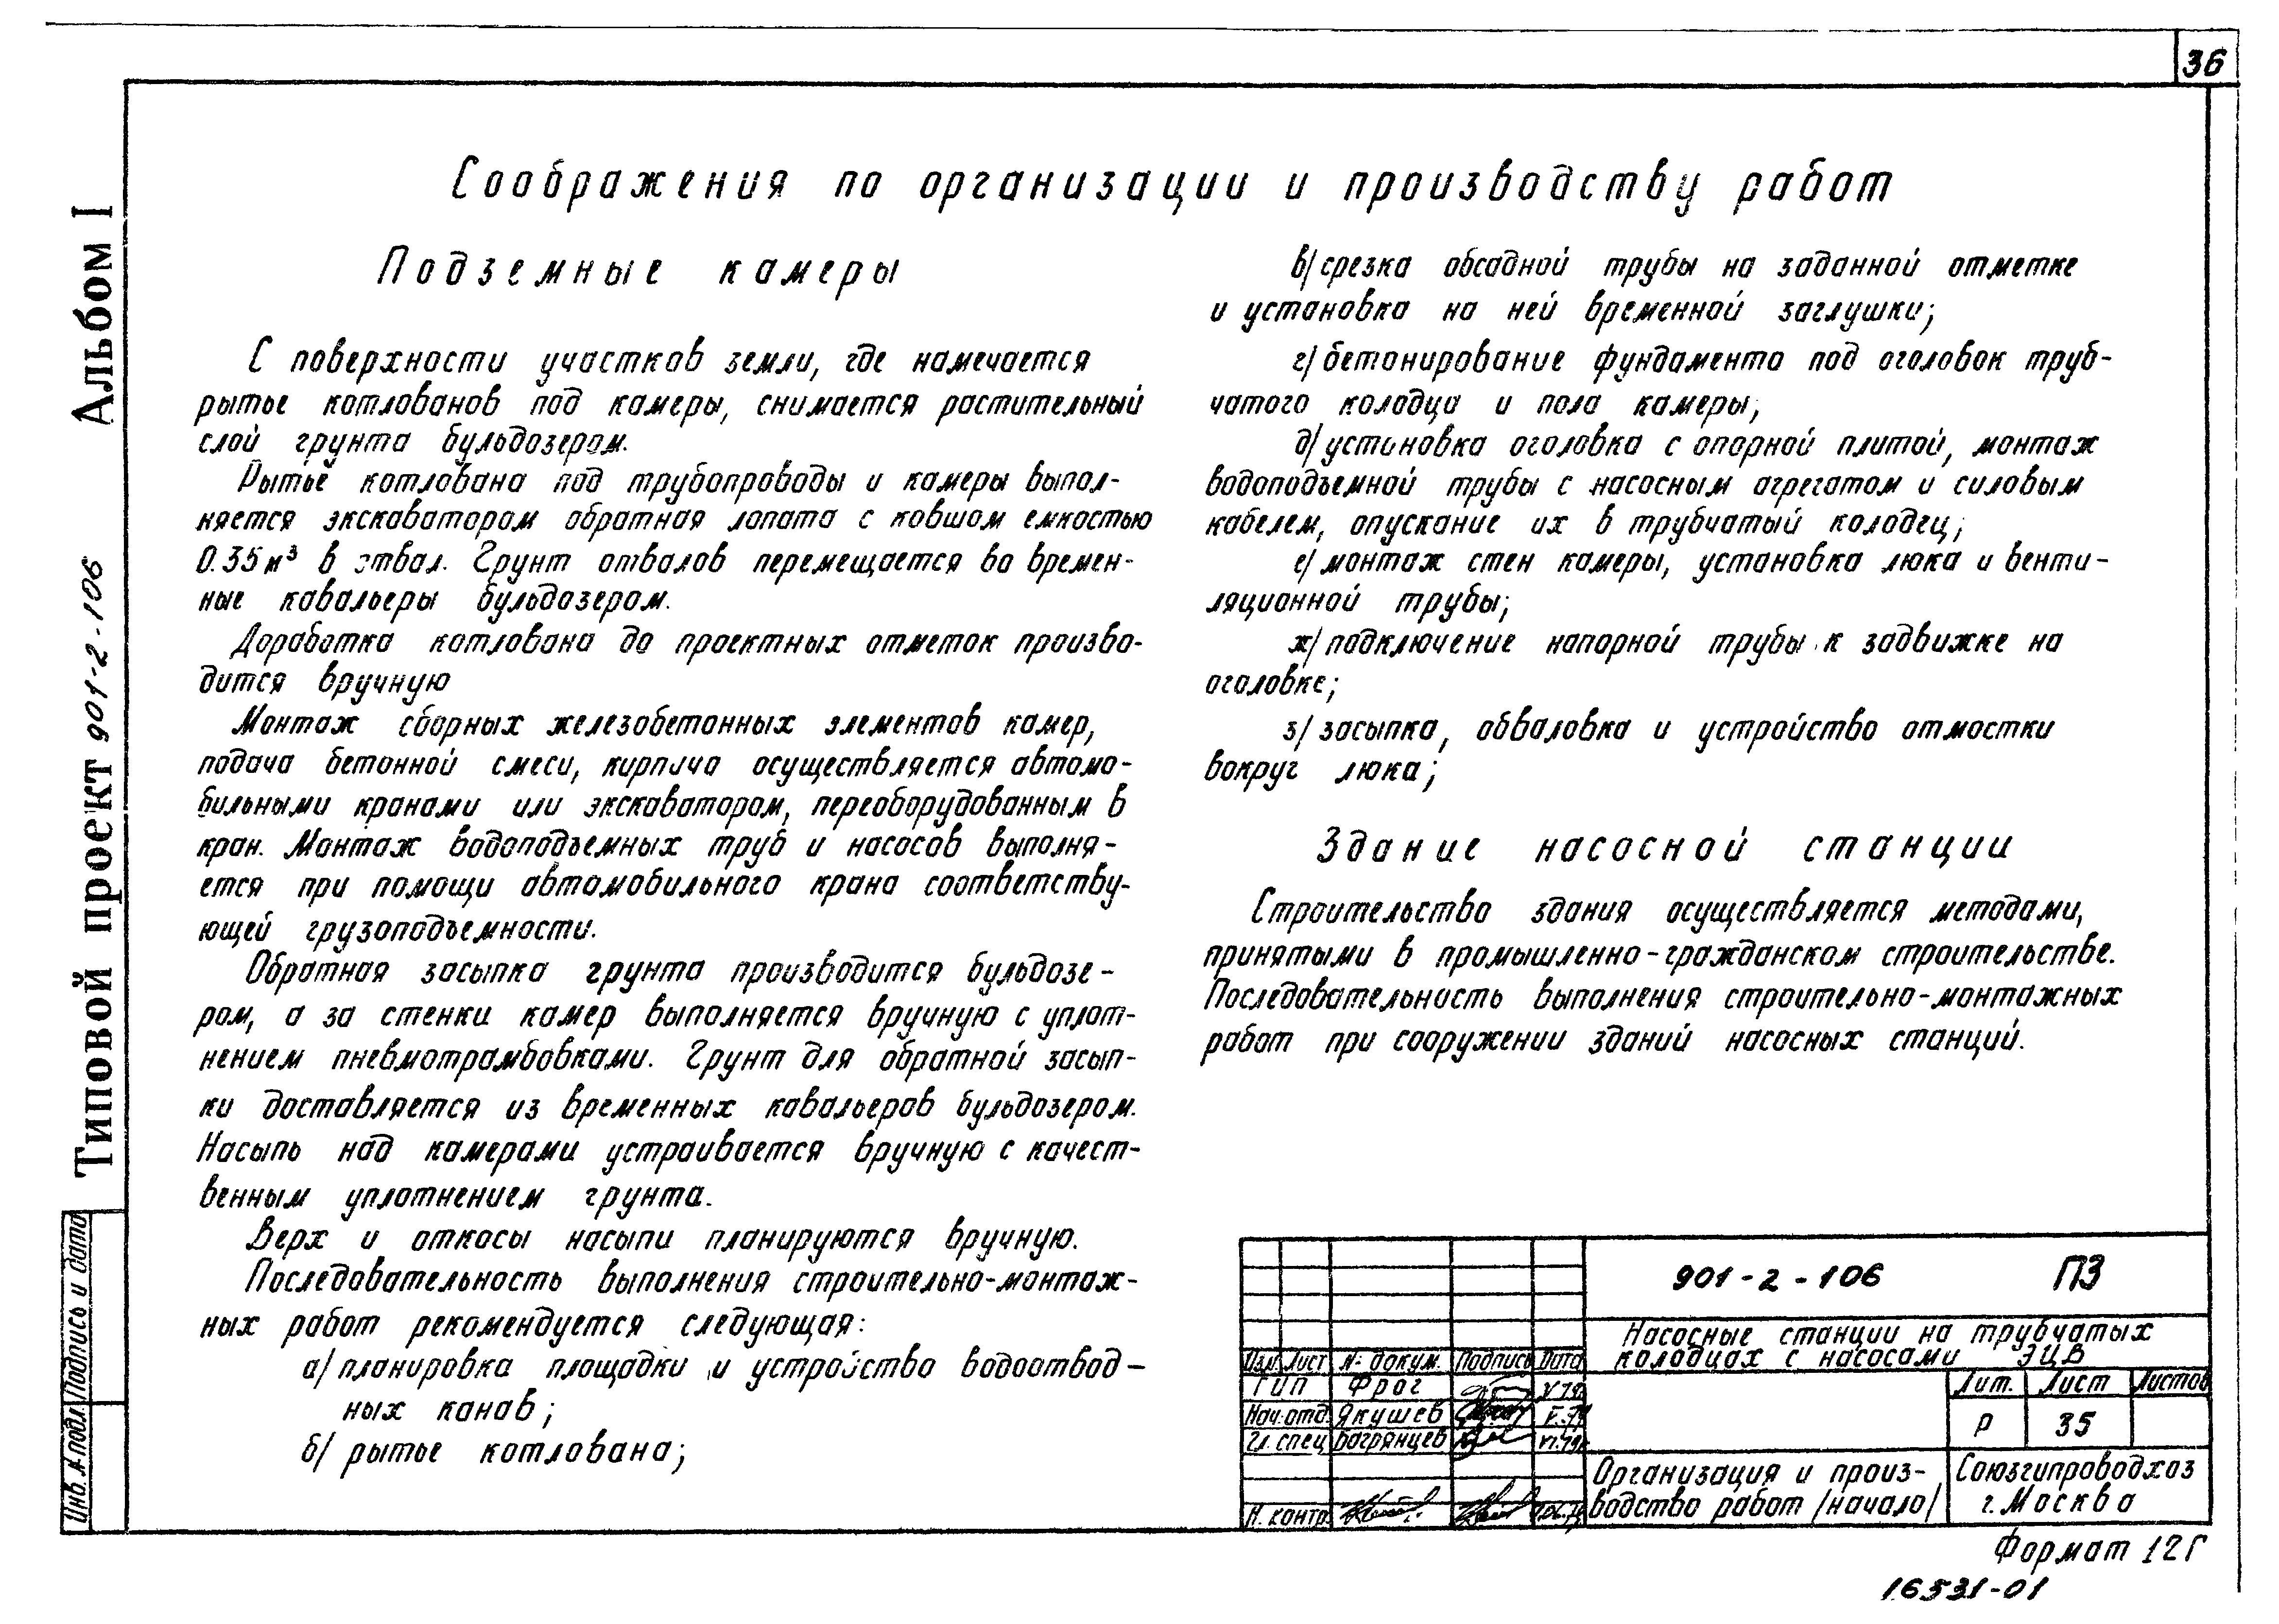 36
Соображения по организации и производству работ
Подземные камеры
С поверхности участков земли, где намечается
рытье котлованов под камеры, снимается растительный
слой грунта бульдозером.
Рытьё котлована под трубопроводы и камеры выпол-
няется экскаватором обратная лопата с ковшом емкостью
0.35 м³ в отвал. Грунт отвалов перемещается во времен-
ные кавальеры бульдозером.
Доработка котлована до проектных отметок произво-
дится вручную
Монтаж сборных железобетонных элементов камер,
подача бетонной смеси, кирпича осуществляется автомо-
бильными кранами или экскаватором, переоборудованным в
кран. Монтаж водоподъемных труб и насосов выполня-
ется при помощи автомобильного крана соответству-
ющей грузоподъемности.
Обратная засыпка грунта производится бульдозе-
ром, а за стенки камер выполняется вручную с уплот-
нением пневмотрамбовками. Грунт для обратной засып-
ки доставляется из временных кавальеров бульдозером.
Насыпь над камерами устраивается вручную с качест-
венным уплотнением грунта.
Верх и откосы насыпи планируются вручную.
Последовательность выполнения строительно-монтаж-
ных работ рекомендуется следующая:
а/ планировка площадки и устройство водоотвод-
ных канав;
б/ рытье котлована;
в/ срезка обсадной трубы на заданной отметке
и установка на ней временной заглушки;
г/ бетонирование фундамента под оголовок труб-
чатого колодца и пола камеры;
д/ установка оголовка с опорной плитой, монтаж
водоподъемной трубы с насосным агрегатом и силовым
кабелем, опускание их в трубчатый колодец;
е/ монтаж стен камеры, установка люка и венти-
ляционной трубы;
ж/ подключение напорной трубы к задвижке на
оголовке;
з/ засыпка, обваловка и устройство отмостки
вокруг люка;
Здание насосной станции
Строительство здания осуществляется методами,
принятыми в промышленно-гражданском строительстве.
Последовательность выполнения строительно-монтажных
работ при сооружении зданий насосных станций.
Типовой проект 901-2-106 Альбом I
Инв. № подл. Подпись и дата
901-2-106 ПЗ
Насосные станции на трубчатых
колодцах с насосами ЭЦВ
Изм. Лист № докум. Подпись Дата
ГИП Фрог V.79
Нач. отд. Якушев V.79
Гл. спец. Багрянцев VI.79г
Н. контр.
Лит. Лист Листов
Р 35
Организация и произ-
водство работ /начало/
Союзгипроводхоз
г. Москва
Формат 12Г
16531-01